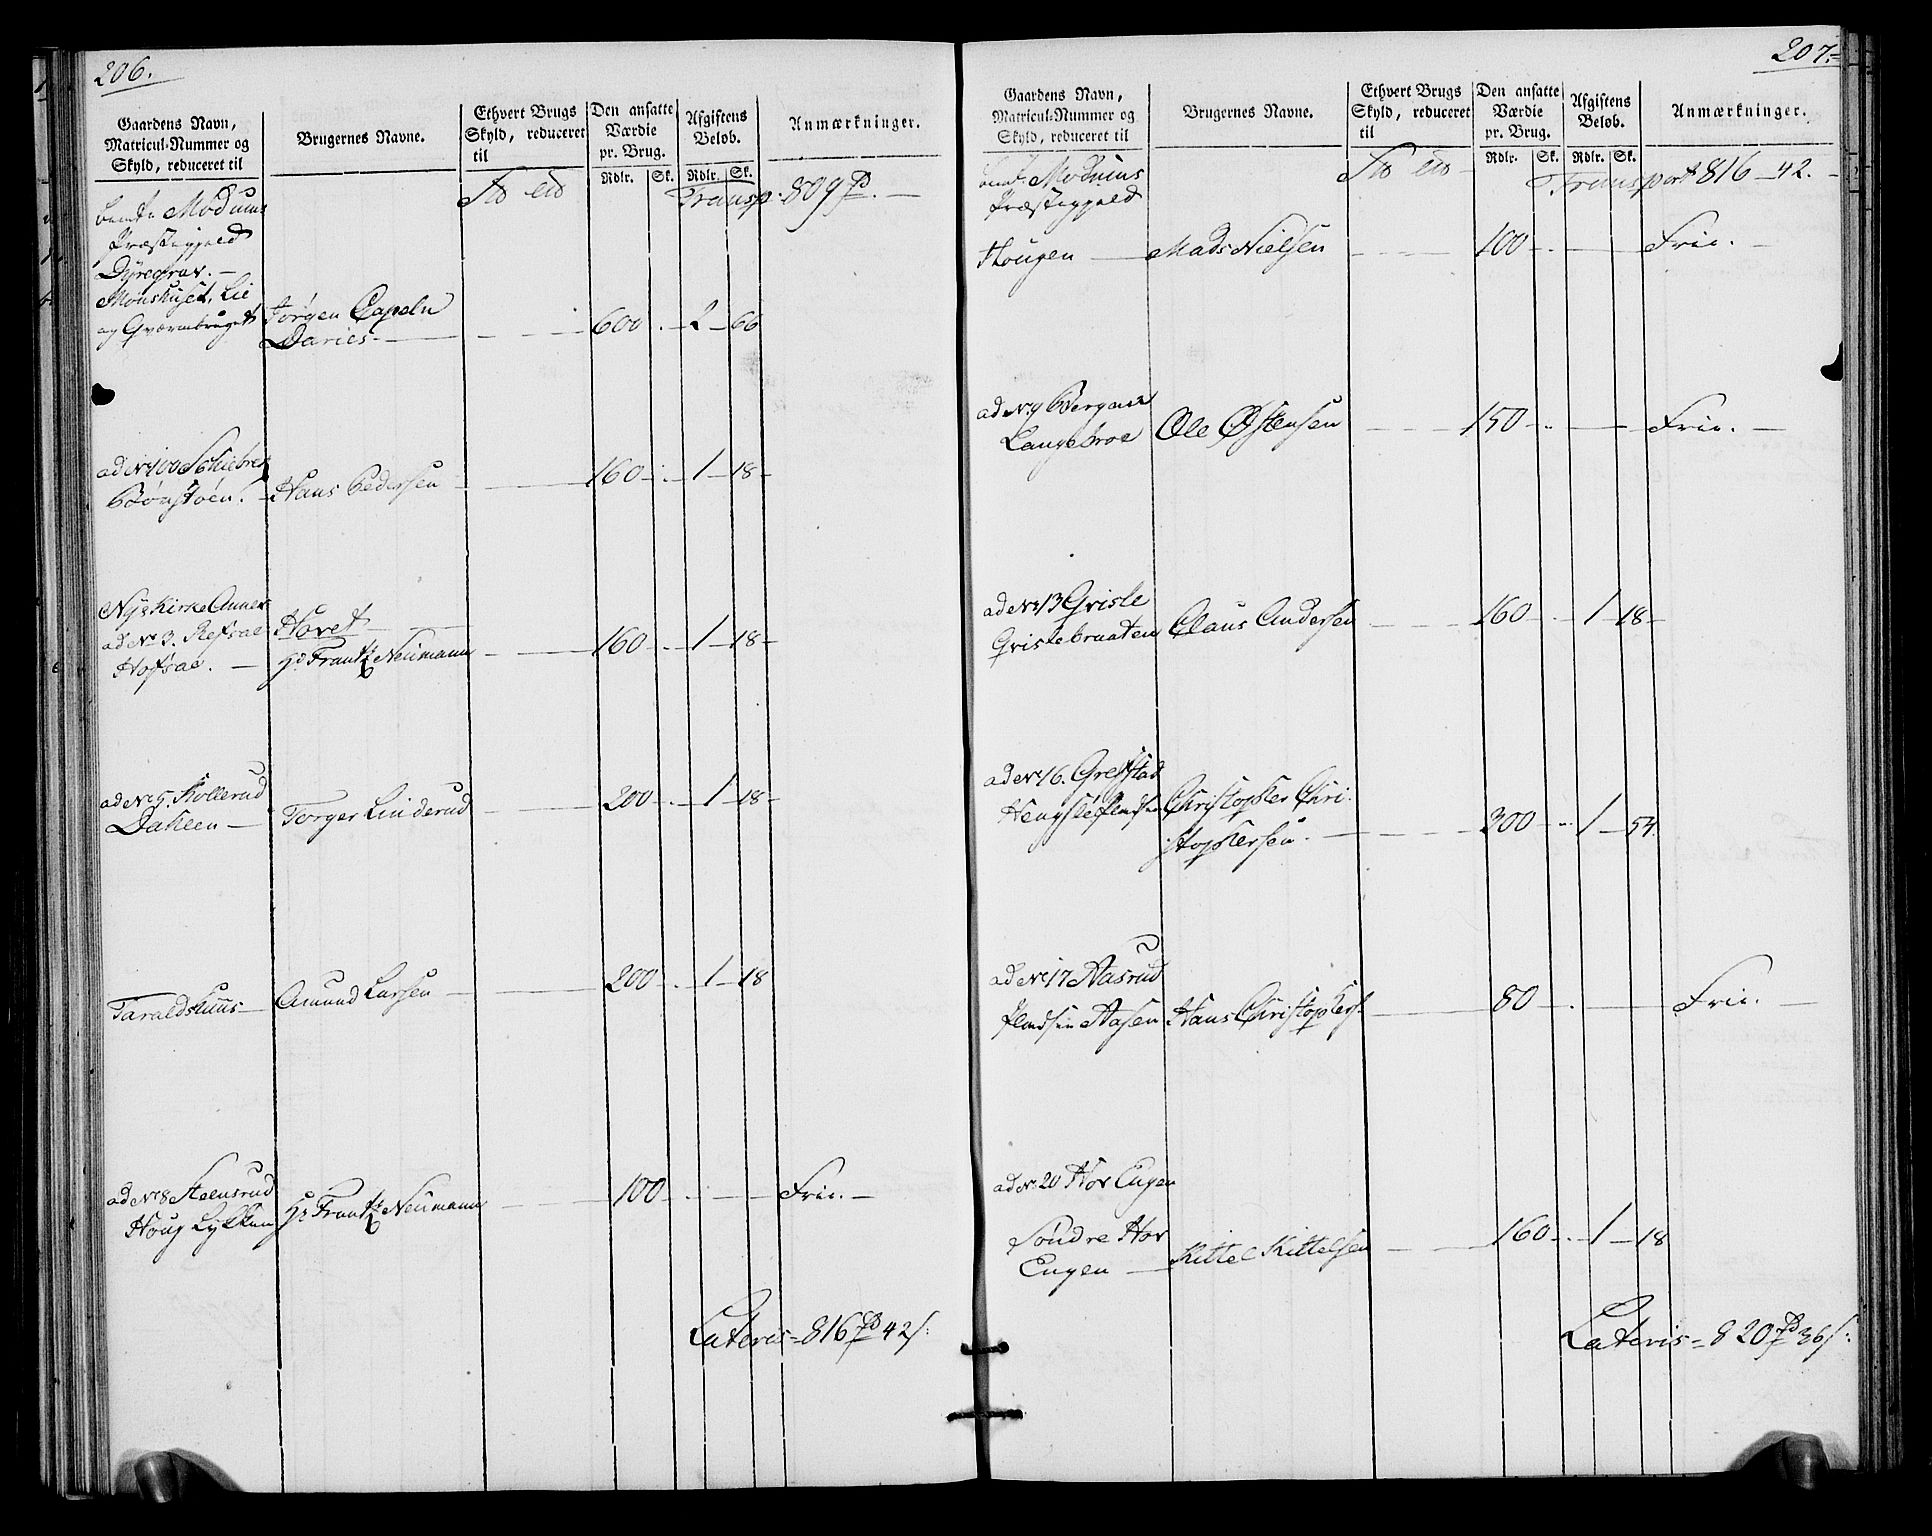 206.
Gaardens Navn,
Matricul-Nummer og
Skyld, reduceret til
Brugernes Navne.
Ethvert Brugs
Skyld, reduceret
til
Den ansatte
Værdie
pr. Brug.
Rdlr. Sk.
Afgiftens
Beløb.
Rdlr. Sk.
Anmærkninger.
Transp: 809
Modums
Præstegjeld
Dyregrav. —
Monshuset, Lie
og Qværnbruget
Jørgen Capeln
Daries — 600 . 2 — 66
ad No 100 Schiebrek
Bønstøen. Hans Pedersen 160 . 1 — 18
Nyekirke Annex
ad No 3. Refsal
Hofsal. —
Hovet
Hr. Frantz Neümann 160 . 1 — 18
ad No 5. Kollerud
Daleen — Torger Linderud 200 . 1 — 18
Taraldshuus — Amund Larsen 200 . 1 — 18
ad No 8 Steensrud
Houg Lykken Hr. Frantz Neümann 100 . Frie. —
Lateris = 816 42
207.
Gaardens Navn,
Matricul-Nummer og
Skyld, reduceret til
Brugernes Navne.
Ethvert Brugs
Skyld, reduceret
til
Den ansatte
Værdie
pr. Brug.
Rdlr. Sk.
Afgiftens
Beløb.
Rdlr. Sk.
Anmærkninger.
Transport 816 — 42.
Modums
Præstegjeld
Hougen — Mads Nielsen 100 — Frie. —
ad No 9 Bergan
Langebroe Ole Østensen 150 — Frie. —
ad No 13 Grisle
Grislebraaten Claus Andersen 160 . 1 — 18
ad No 16. Grefstad
Hengsle Pladsen Christopher Chri-
stophersen. 300 . 1 — 54.
ad No 17 Aasrud
Pladsen Aasen Hans Christophers. 80 — Frie. —
ad No 20 Hov Engen
Søndre Hov
Engen — Kittel Kittelsen 160 . 1 — 18
Lateris = 820 36